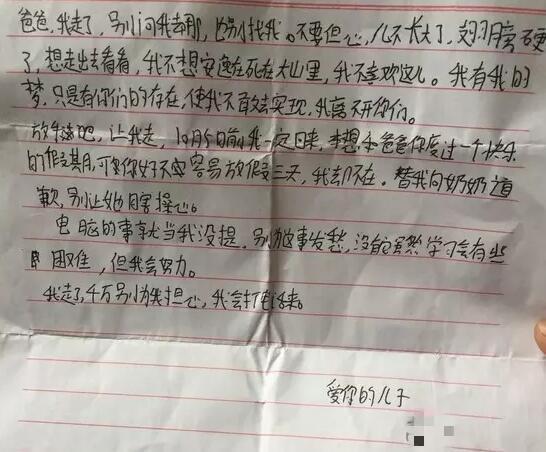 爸爸,我走了,别问我去那,也别找我。不要但心,儿不长大了,翅膀硬
了,想走出去看看,我不想安逸在死在大山里,我不喜欢这儿。我有我的
梦,只是有你们的存在,使我不敢去实现,我离不开你们。
放手吧,让我走,10月5日前我一定回来,本想和爸爸你度过一个快乐
的假其月,可是你好不容易放假三天,我却不在。替我向奶奶道
歉,别让她瞎操心。
电脑的事就当我没提,别为这事发愁,没的虽然学习会有些
困难,但我会努力。
我走了,千万别为我担心,我会打电话来。
爱你的儿子